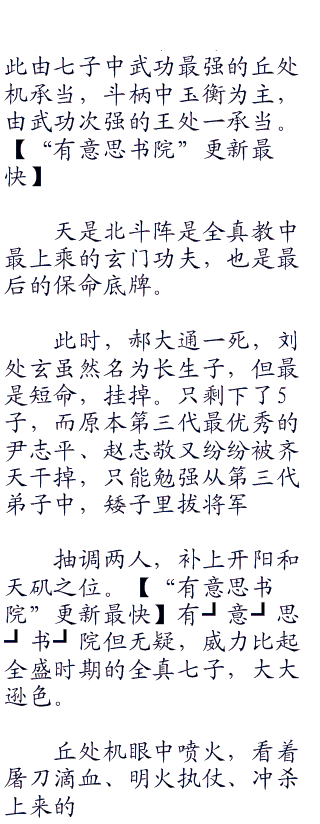 此由七子中武功最强的丘处
机承当，斗柄中玉衡为主，
由武功次强的王处一承当。
【“有意思书院”更新最
快】
天是北斗阵是全真教中
最上乘的玄门功夫，也是最
后的保命底牌。
此时，郝大通一死，刘
处玄虽然名为长生子，但最
是短命，挂掉。只剩下了5
子，而原本第三代最优秀的
尹志平、赵志敬又纷纷被齐
天干掉，只能勉强从第三代
弟子中，矮子里拔将军
抽调两人，补上开阳和
天矶之位。【“有意思书
院”更新最快】有┛意┛思
┛书┛院但无疑，威力比起
全盛时期的全真七子，大大
逊色。
丘处机眼中喷火，看着
屠刀滴血、明火执仗、冲杀
上来的